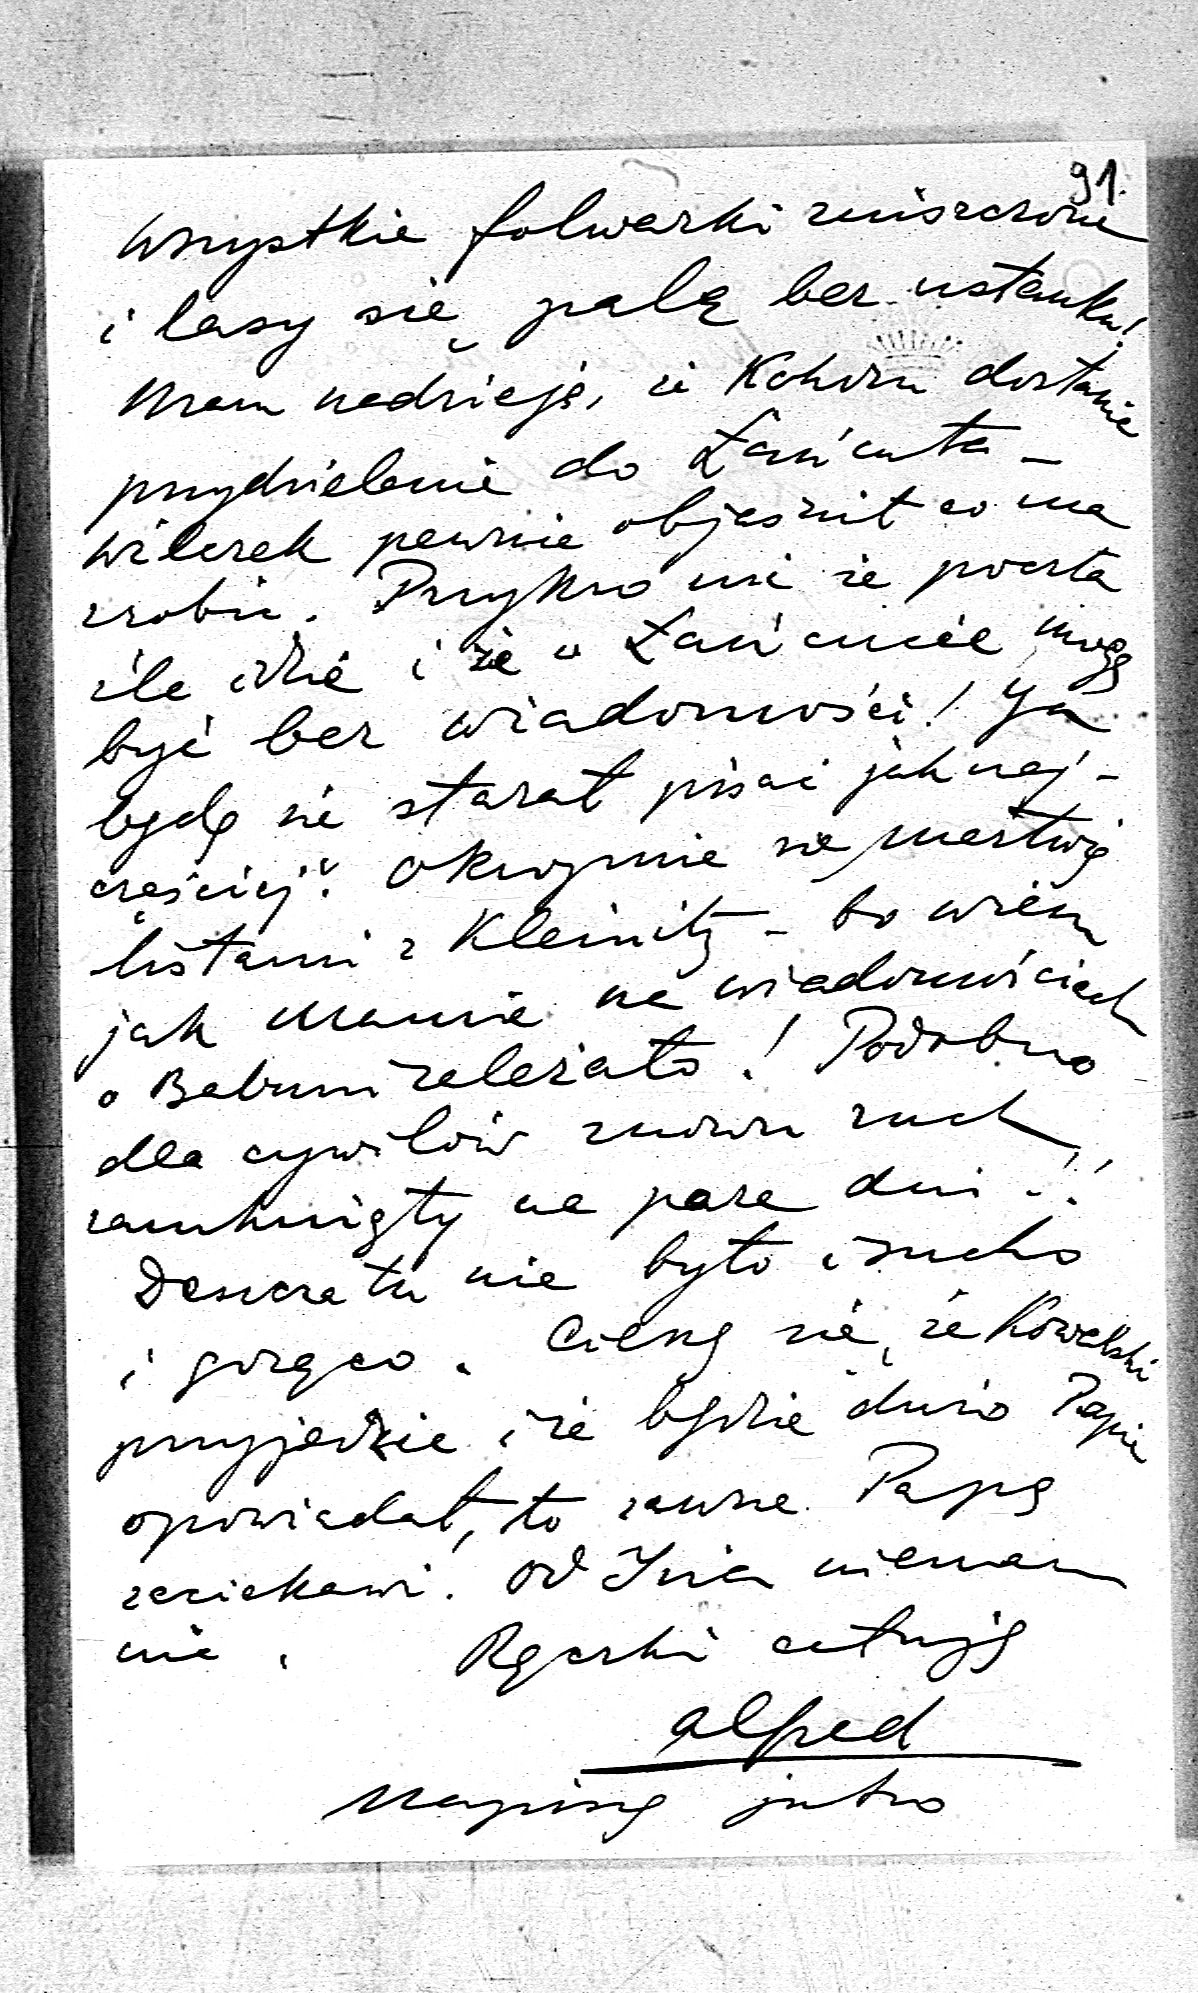 91.
Wszystkie folwarki zniszczone
i lasy się palą bez ustanku!
Mam nadzieję, że Kohorn dostanie
przydzielenie do Łańcuta –
Wilczek pewnie objaśnił co ma
zrobić. Przykro mi że poczta
źle idzie i że o Łańcucie mogę
być bez wiadomości! Ja
będę się starał pisać jaknaj-
częściej. Okropnie się martwię
listami z Kleinitz – bo wiem
jak Mamie na wiadomościach
o Babuni zależało! Podobno
dla cywilów znowu ruch
zamknięty na parę dni!!
Deszczu tu nie było i sucho
i gorąco. Cieszę się, że Kowalski
przyjedzie i że będzie dużo Papie
opowiadał, to zawsze Papę
zaciekawi! Od Jzia niemam
nic. Rączki całuję
Alfred
Napiszę jutro